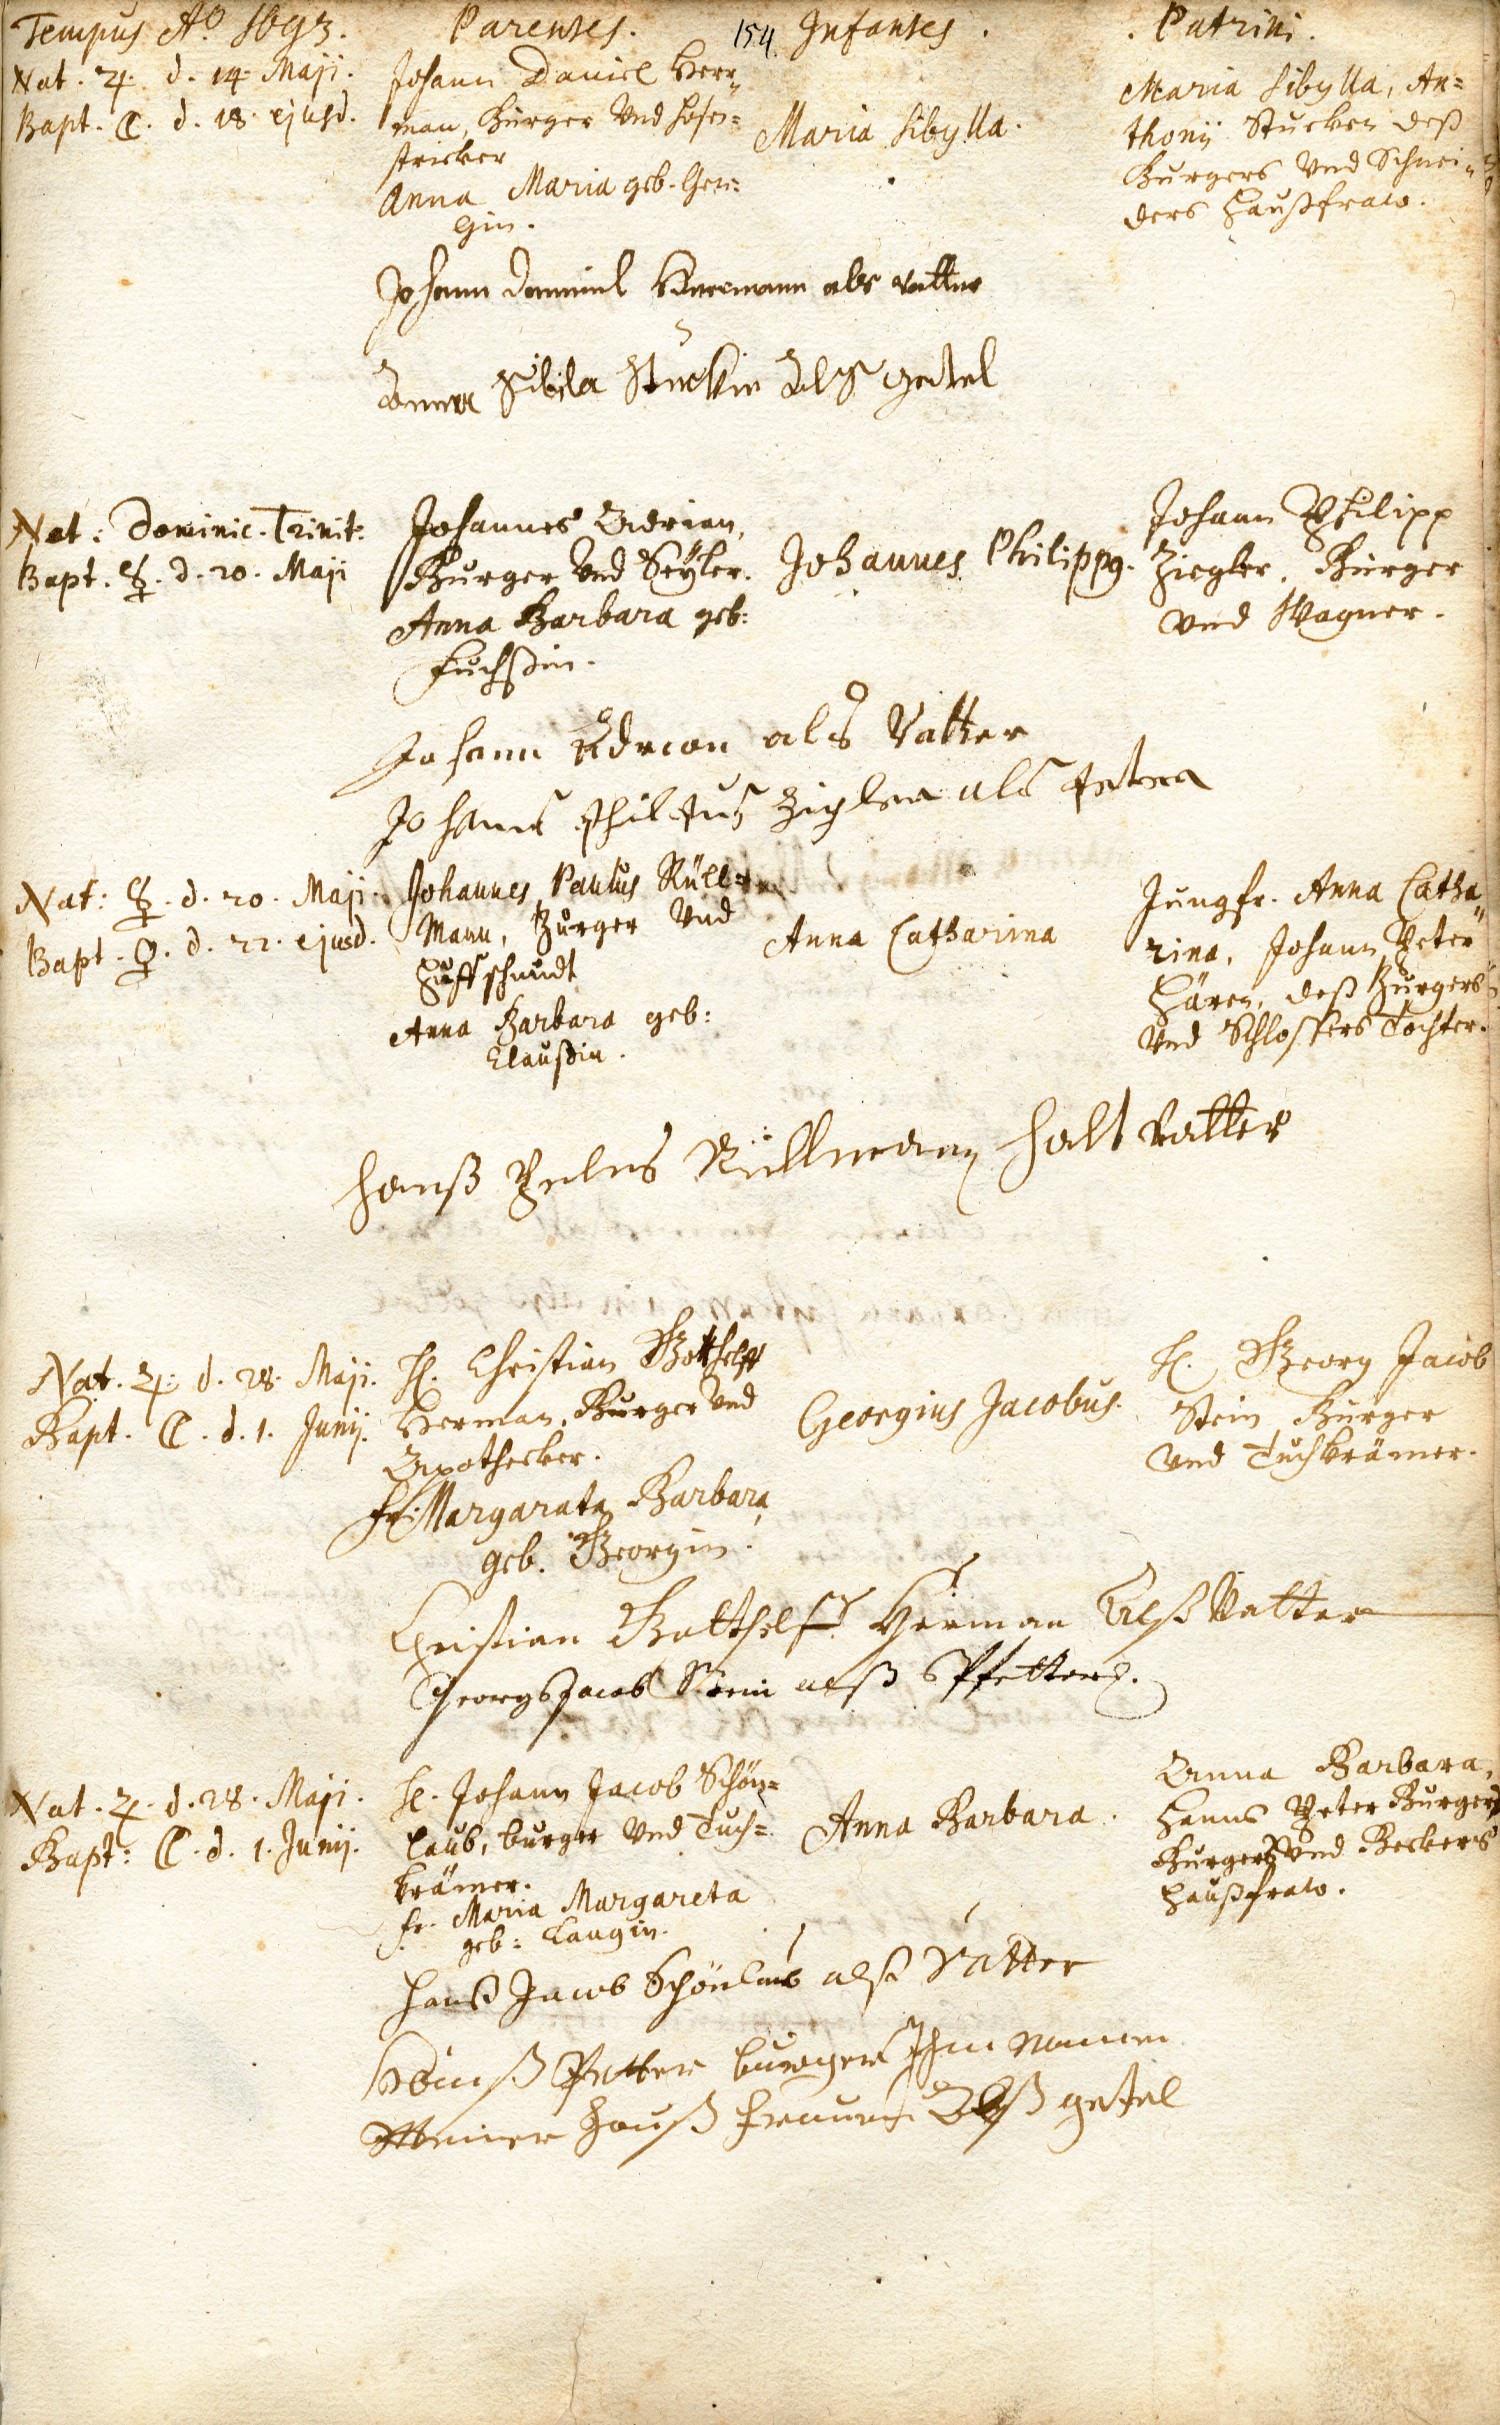 Tempus Aº 1693.
Parentes.
154.
Infantes.
Patrini.
Nat. ♃. d. 14. Maji.
Bapt. ☾. d. 18. ejusd.
Johann Daniel Herr=
man, Burger Vnd Hosen=
stricker
Anna Maria geb.
gin.
Maria Sibylla.
Maria Sibylla, An=
thonij Stucken deß
Burgers Vnd Schnei=
ders Haußfraw.
Johann Danniel Herrmann als vatter
Sibila Stuckin Als getel
Nat: Dominic. Trinit:
Bapt. ☿. d. 20. Maji
Johannes Adrian,
Burger Vnd Seyler.
Anna Barbara geb:
Fuchßin.
Johannes Philippꝰ.
Johann Philipp
Ziegler, Burger
Vnd Wagner.
Johann Adrian als Vatter
Johanes Ziegler als
Nat: ☿. d. 20. Maji.
Bapt. ♀. d. 22. ejusd.
Johannes Paulus Rüll=
Mann, Burger Vnd
Huffschmidt
Anna Barbara geb:
Claußin.
Anna Catharina
Jungfr. Anna Catha=
rina, Johann Peter
Hären, deß Burgers
Vnd Schlossers Tochter.
Hanß Rüllmann halt Vatter
Nat. ♃: d. 28. Maji.
Bapt. ☾. d. 1. Junij.
H. Christian Gotthelff
Herman, Burger Vnd
Apothecker.
Fr. Margarata Barbara
geb. Georgin.
Georgius Jacobus.
H. Georg Jacob
Stein Burger
Vnd Tuchkrämer.
Christian Gotthelff Herman Alß Vatter
Georg Jacob Stein alß Pfetter.
Nat. ♃. d. 28. Maji.
Bapt: ☾. d. 1. Junij.
H. Johann Jacob Schön=
laub, burger Vnd Tuch=
krämer.
Fr. Maria Margareta
geb: Langin.
Anna Barbara.
Anna Barbara,
Hanns Peter Burgers
Burgers Vnd Beckers
Haußfraw.
Hanß Jacob Schönlaub alß Vatter
Hanß Petter burger Ihm namen
Meiner Hauß Frauen Alß getel